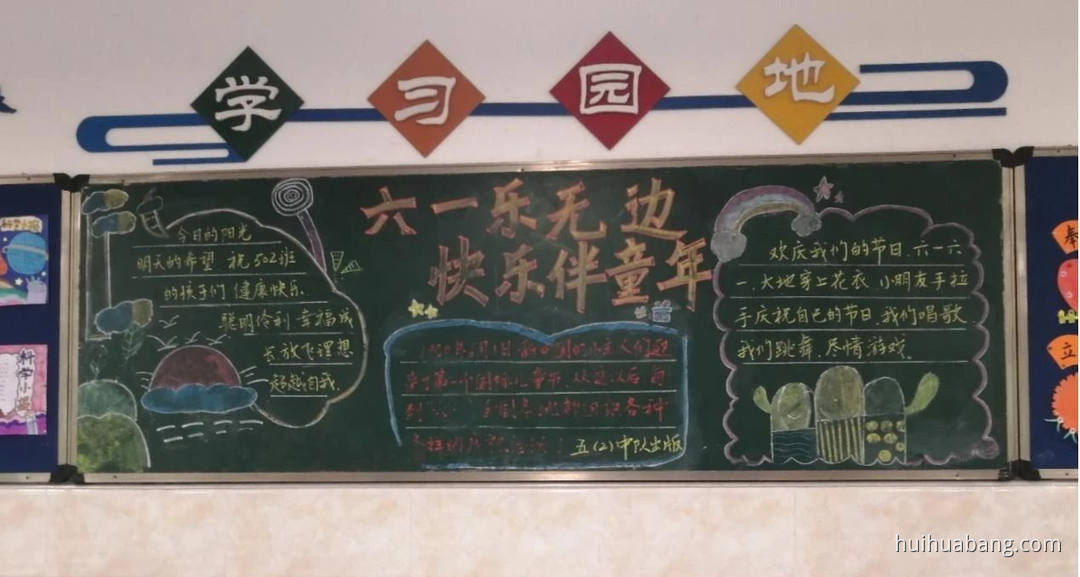 学习园地
六一乐无边
快乐伴童年
今日的阳光
明天的希望.祝502班
的孩子们 健康快乐
聪明伶利 幸福成
长放飞理想
超越自我.
年6月1日
第一个国际儿童节.从这以后 每
各种
五(2)中队出版
欢庆我们的节日.六一六
一.大地穿上花衣 小朋友手拉
手庆祝自己的节日.我们唱歌
我们跳舞.尽情游戏.
科学小报
科学小报
立
huihuabang.com